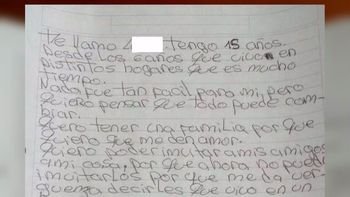 Te llamo tengo 15 años.
Desde los 6 años que vivo en
Distintos hogares que es mucho
tiempo.
Nada fue tan facil para mi, pero
quiero pensar que todo puede cam-
biar.
Quero tener una familia por que
quiero que me den amor.
Quiero poder invitar a mis amigos
a mi casa, por que ahora no puedo
invitarlos por que me da ver-
guenza decirles que vivo en un